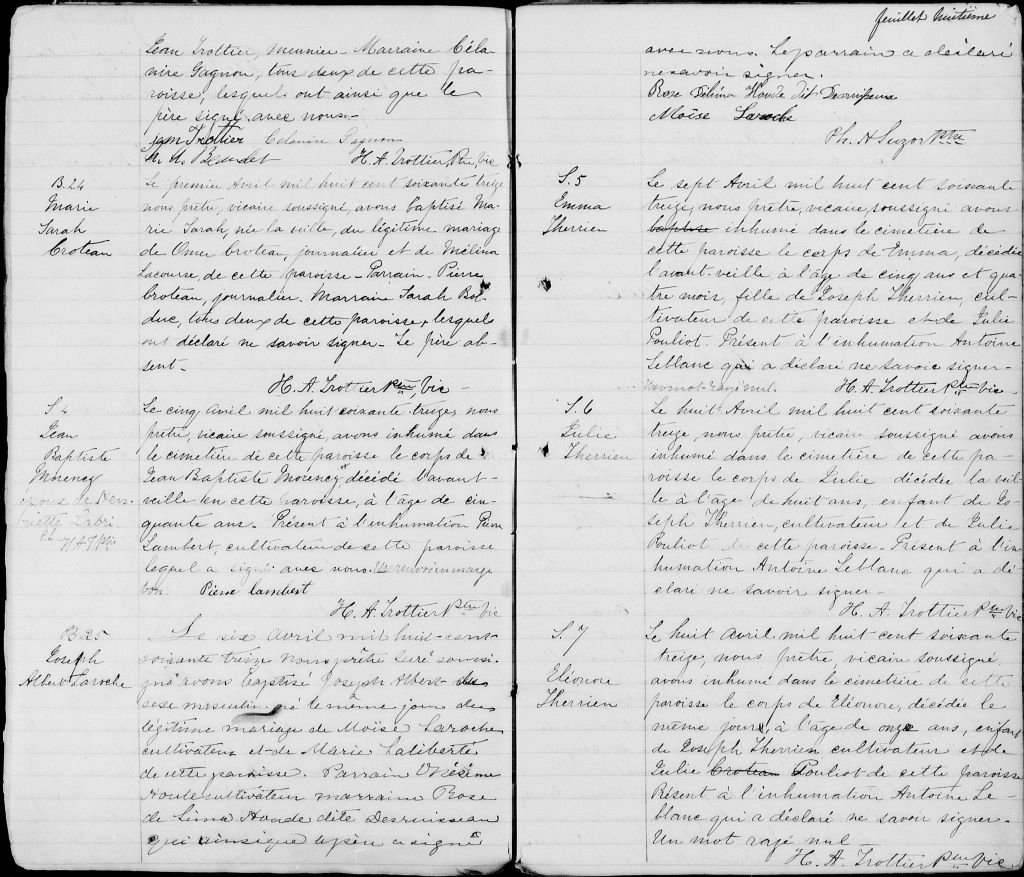 Jean Trottier, meunier - Marraine Céla-
nire Gagnon, tous deux de cette pa-
roisse, lesquels ont ainsi que le
père signé avec nous -
Jean Trottier Célanire Gagnon
Beaudet H. A. Trottier Ptre, Vic
B. 24
Marie
Sarah
Croteau
Le premier Avril mil huit cent soixante treize
nous prêtre, vicaire soussigné, avons baptisé Ma-
rie Sarah, née la veille, du légitime mariage
de Omer Croteau, journalier et de Mélina
Lacourse, de cette paroisse - Parrain Pierre
Croteau, journalier. Marraine Sarah Bol-
duc, tous deux de cette paroisse, lesquels
ont déclaré ne savoir signer - Le père ab-
sent -
H. A. Trottier Ptre, Vic -
S. 4
Jean
Baptiste
Morency
époux de Hen-
riette Labri
H A T Ptre
Le cinq Avril mil huit soixante-treize, nous
prêtre, vicaire soussigné, avons inhumé dans
le cimetière de cette paroisse le corps de
Jean Baptiste Morency décédé l'avant-
veille en cette paroisse, à l'âge de cin-
quante ans - Présent à l'inhumation Pierre
Lambert, cultivateur de cette paroisse
lequel a signé avec nous. Un renvoi en marge
bon. Pierre lambert
H. A. Trottier Ptre Vic
B. 25
Joseph
Albert Laroche
Le six Avril mil huit-cent-
soixante treize nous prêtre curé soussi-
gné avons baptisé Joseph Albert du
sexe masculin né le même jour du
légitime mariage de Moïse Laroche
cultivateur et de Marie Laliberté
de cette paroisse. Parrain Onésime
Houle cultivateur marraine Rose
de Lima Houde dite Desruisseau
qui ainsi que le père a signé
feuillet huitième
avec nous. Le parrain a déclaré
ne savoir signer.
Rose Délima Houde dit Desruisseux
Moïse Laroche
Ph. H Suzor Ptre
S. 5
Emma
Therrien
Le sept Avril mil huit cent soixante
treize, nous prêtre, vicaire, soussigné avons
baptisé inhumé dans le cimetière de
cette paroisse le corps de Emma, décédée
l'avant-veille à l'âge de cinq ans et qua-
tre mois, fille de Joseph Therrien, cul-
tivateur de cette paroisse et de Julie
Pouliot. Présent à l'inhumation Antoine
Leblanc qui a déclaré ne savoir signer -
Un mot rayé nul. H. A. Trottier Ptre Vic -
S. 6
Julie
Therrien
Le huit Avril mil huit cent soixante
treize, nous prêtre, vicaire soussigné avons
inhumé dans le cimetière de cette pa-
roisse le corps de Julie décédée la veil-
le à l'âge de huit ans, enfant de Jo-
seph Therrien, cultivateur et de Julie
Pouliot de cette paroisse. Présent à l'in-
humation Antoine Leblanc qui a dé-
claré ne savoir signer -
H. A. Trottier Ptre Vic
S. 7
Eléonore
Therrien
Le huit Avril mil huit cent soixante
treize, nous prêtre, vicaire soussigné
avons inhumé dans le cimetière de cette
paroisse le corps de Eléonore, décédée le
même jour, à l'âge de onze ans, enfant
de Joseph Therrien cultivateur et de
Julie Croteau Pouliot de cette paroisse
Présent à l'inhumation Antoine Le-
blanc qui a déclaré ne savoir signer -
Un mot rayé nul
H. A. Trottier Ptre Vic